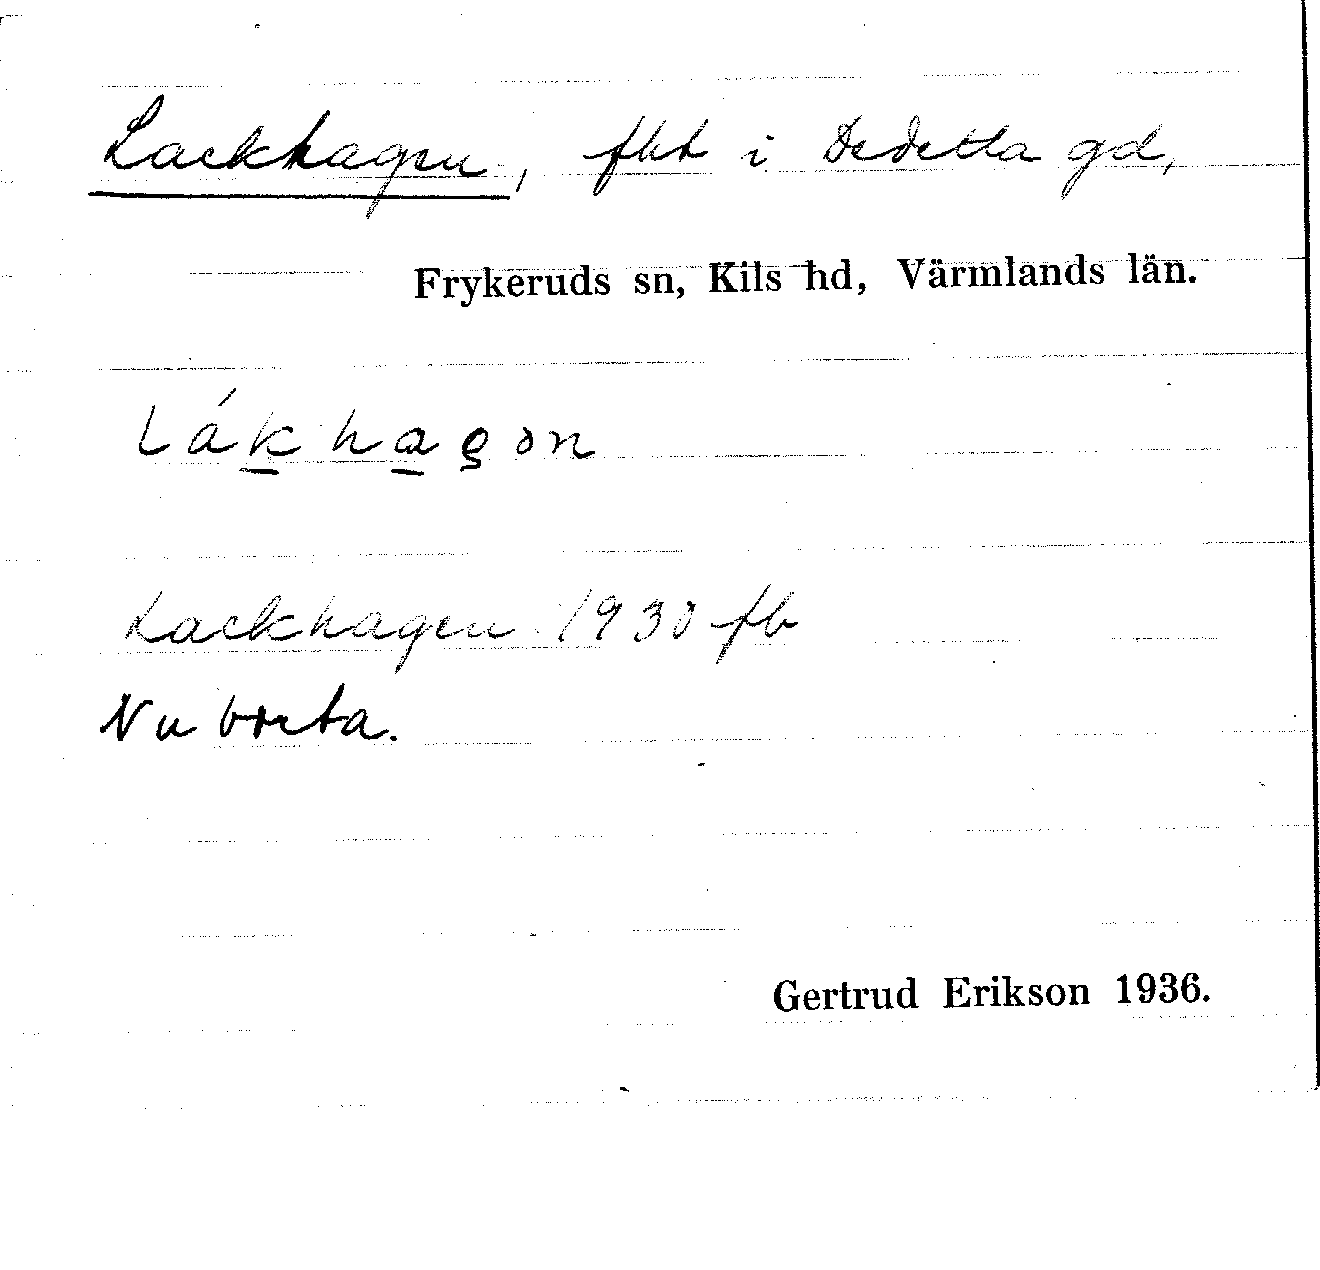 Lackhagen, fht i Dedetta gd,
Frykeruds sn, Kils hd, Värmlands län.
lákhagən
Lackhagen 1930 fb
Nu borta.
Gertrud Erikson 1936.